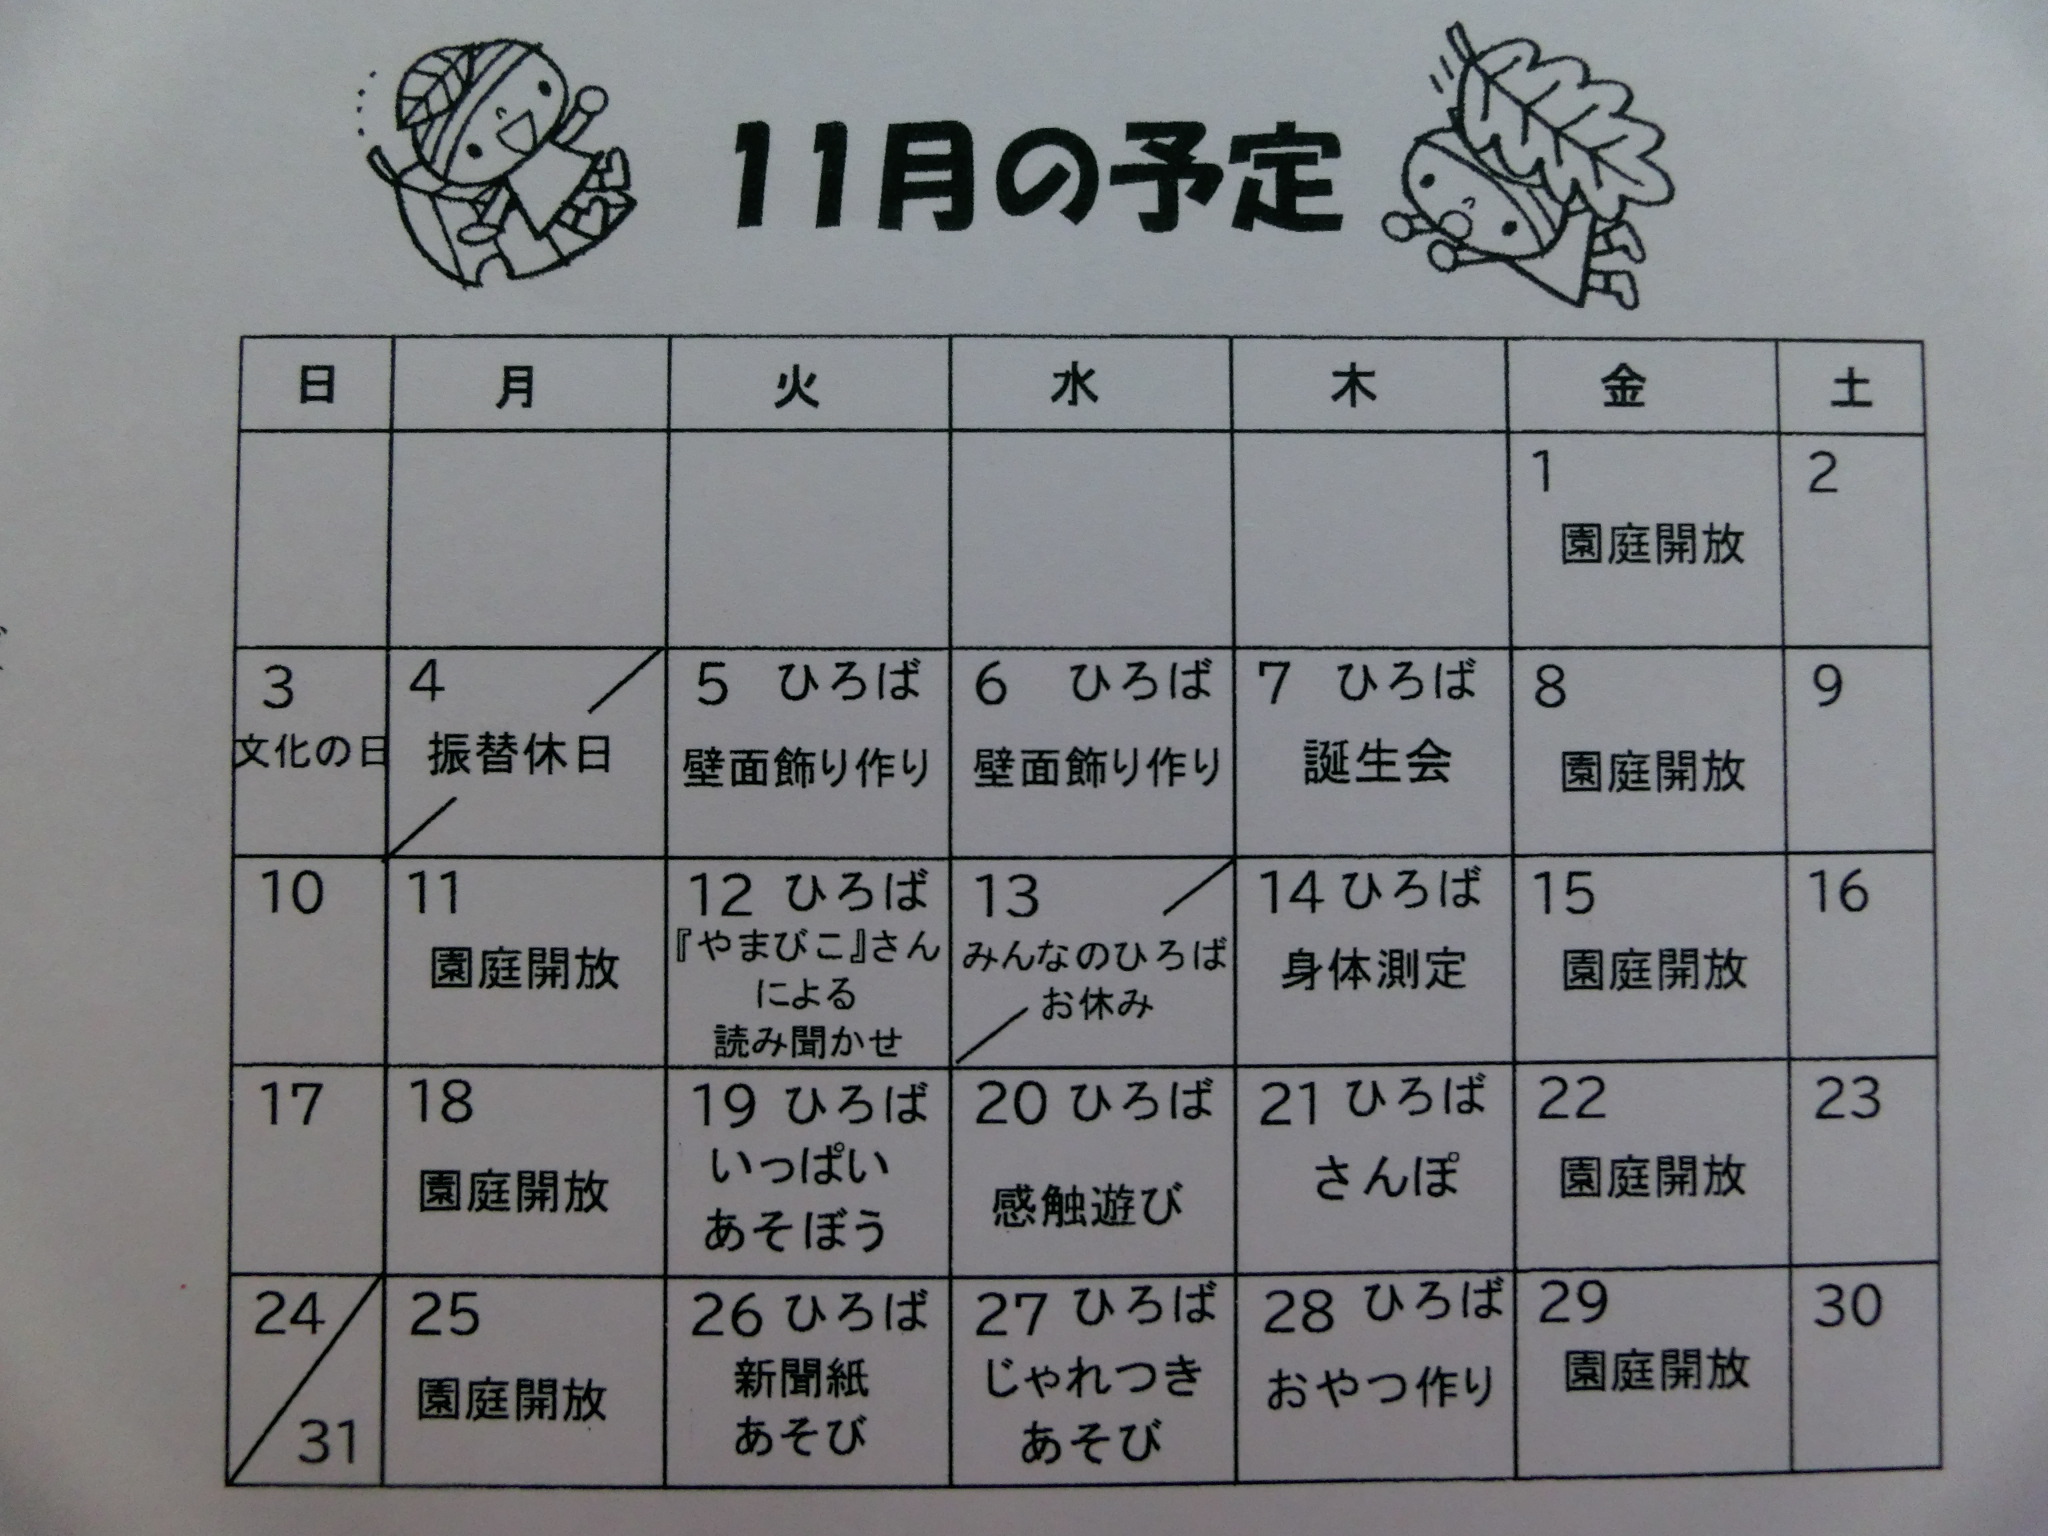 11月の予定
日 月 火 水 木 金 土
1 2
園庭開放
3 4 5 ひろば 6 ひろば 7 ひろば 8 9
文化の日 振替休日 壁面飾り作り 壁面飾り作り 誕生会 園庭開放
10 11 12 ひろば 13 14 ひろば 15 16
園庭開放 『やまびこ』さん みんなのひろば 身体測定 園庭開放
による お休み
読み聞かせ
17 18 19 ひろば 20 ひろば 21 ひろば 22 23
園庭開放 いっぱい 感触遊び さんぽ 園庭開放
あそぼう
24 25 26 ひろば 27 ひろば 28 ひろば 29 30
園庭開放 新聞紙 じゃれつき おやつ作り 園庭開放
31 あそび あそび